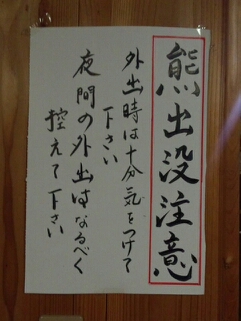 熊出没注意
外出時は十分気をつけて
下さい
夜間の外出はなるべく
控えて下さい